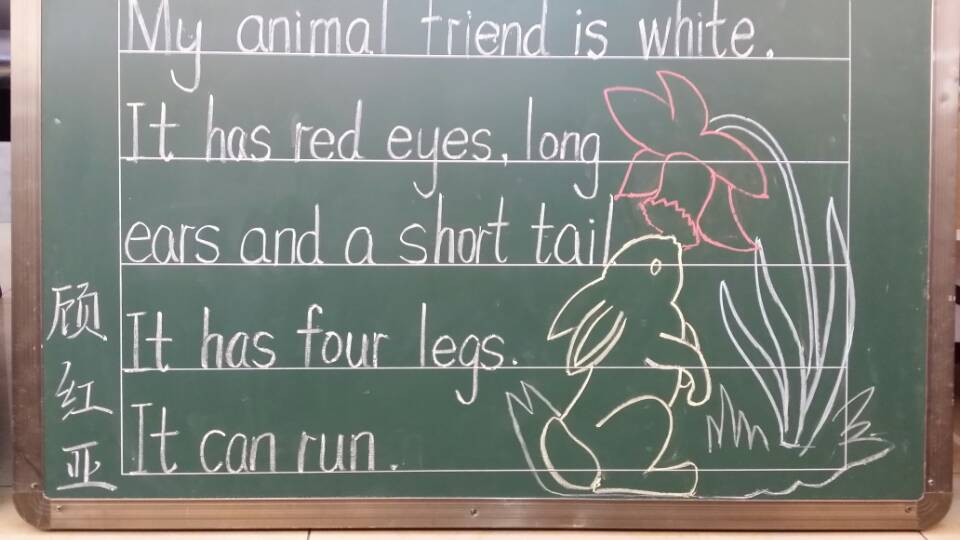 My animal friend is white.
It has red eyes, long
ears and a short tail
It has four legs.
It can run.
顾红亚